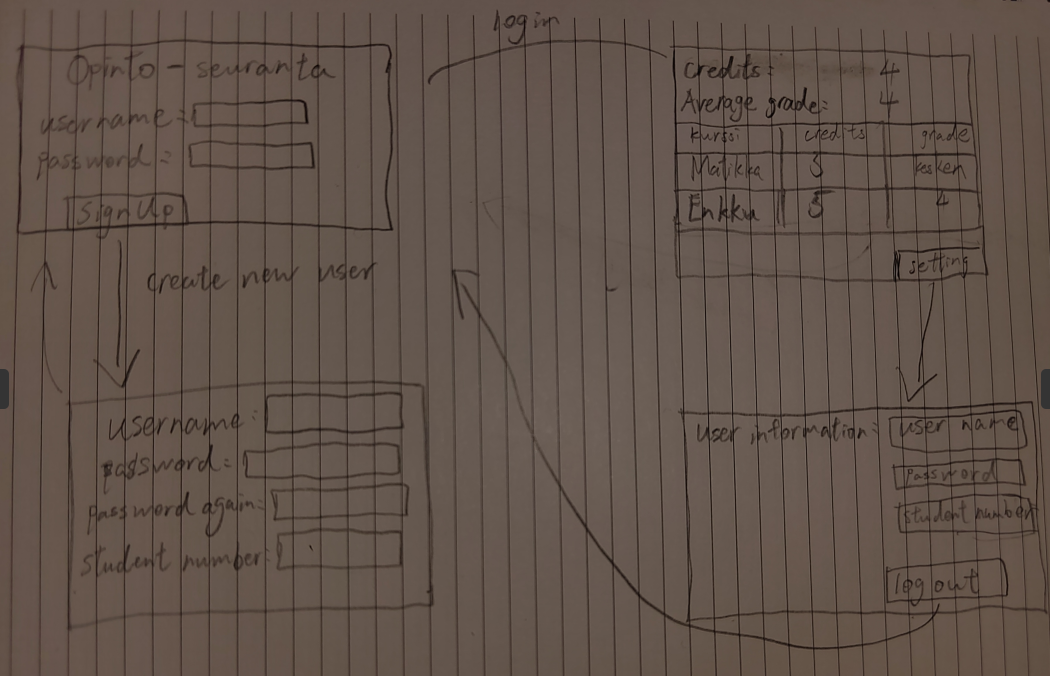 login
Opinto - seuranta
username =
password =
Sign Up
create new user
username:
password:
password again:
student number:
credits: 4
Average grade: 4
kurssi credits grade
Matikka 3 kesken
Enkku 5 4
setting
User information: user name
password
student number
log out